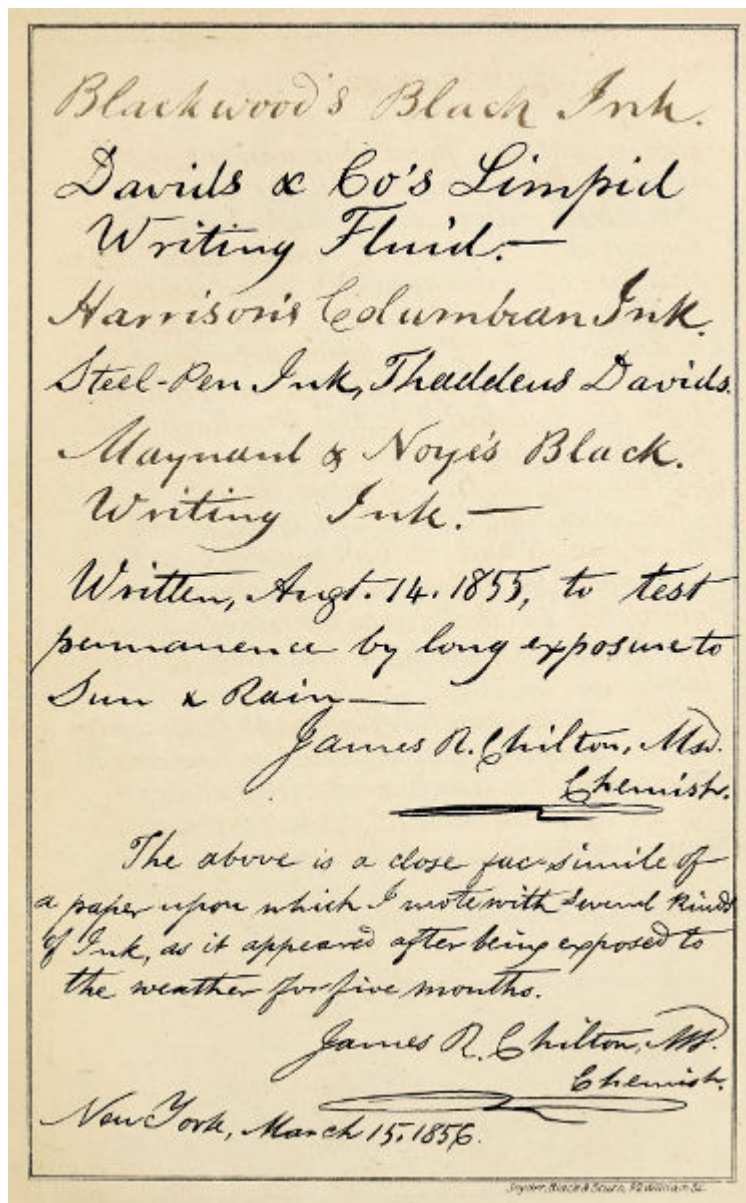 Blackwood's Black Ink.
Davids & Co's Limpid
Writing Fluid.—
Harrison's Columbian Ink.
Steel-Pen Ink, Thaddeus Davids.
Maynard & Noye's Black.
Writing Ink.—
Written, Augt. 14. 1855, to test
permanence by long exposure to
Sun & Rain—
James R. Chilton, MD.
Chemist.
The above is a close fac-simile of
a paper upon which I wrote with several kinds
of Ink, as it appeared after being exposed to
the weather for five months.
James R. Chilton, MD.
Chemist.
New York, March 15, 1856.
Snyder, Black & Sturn, 92 William St.